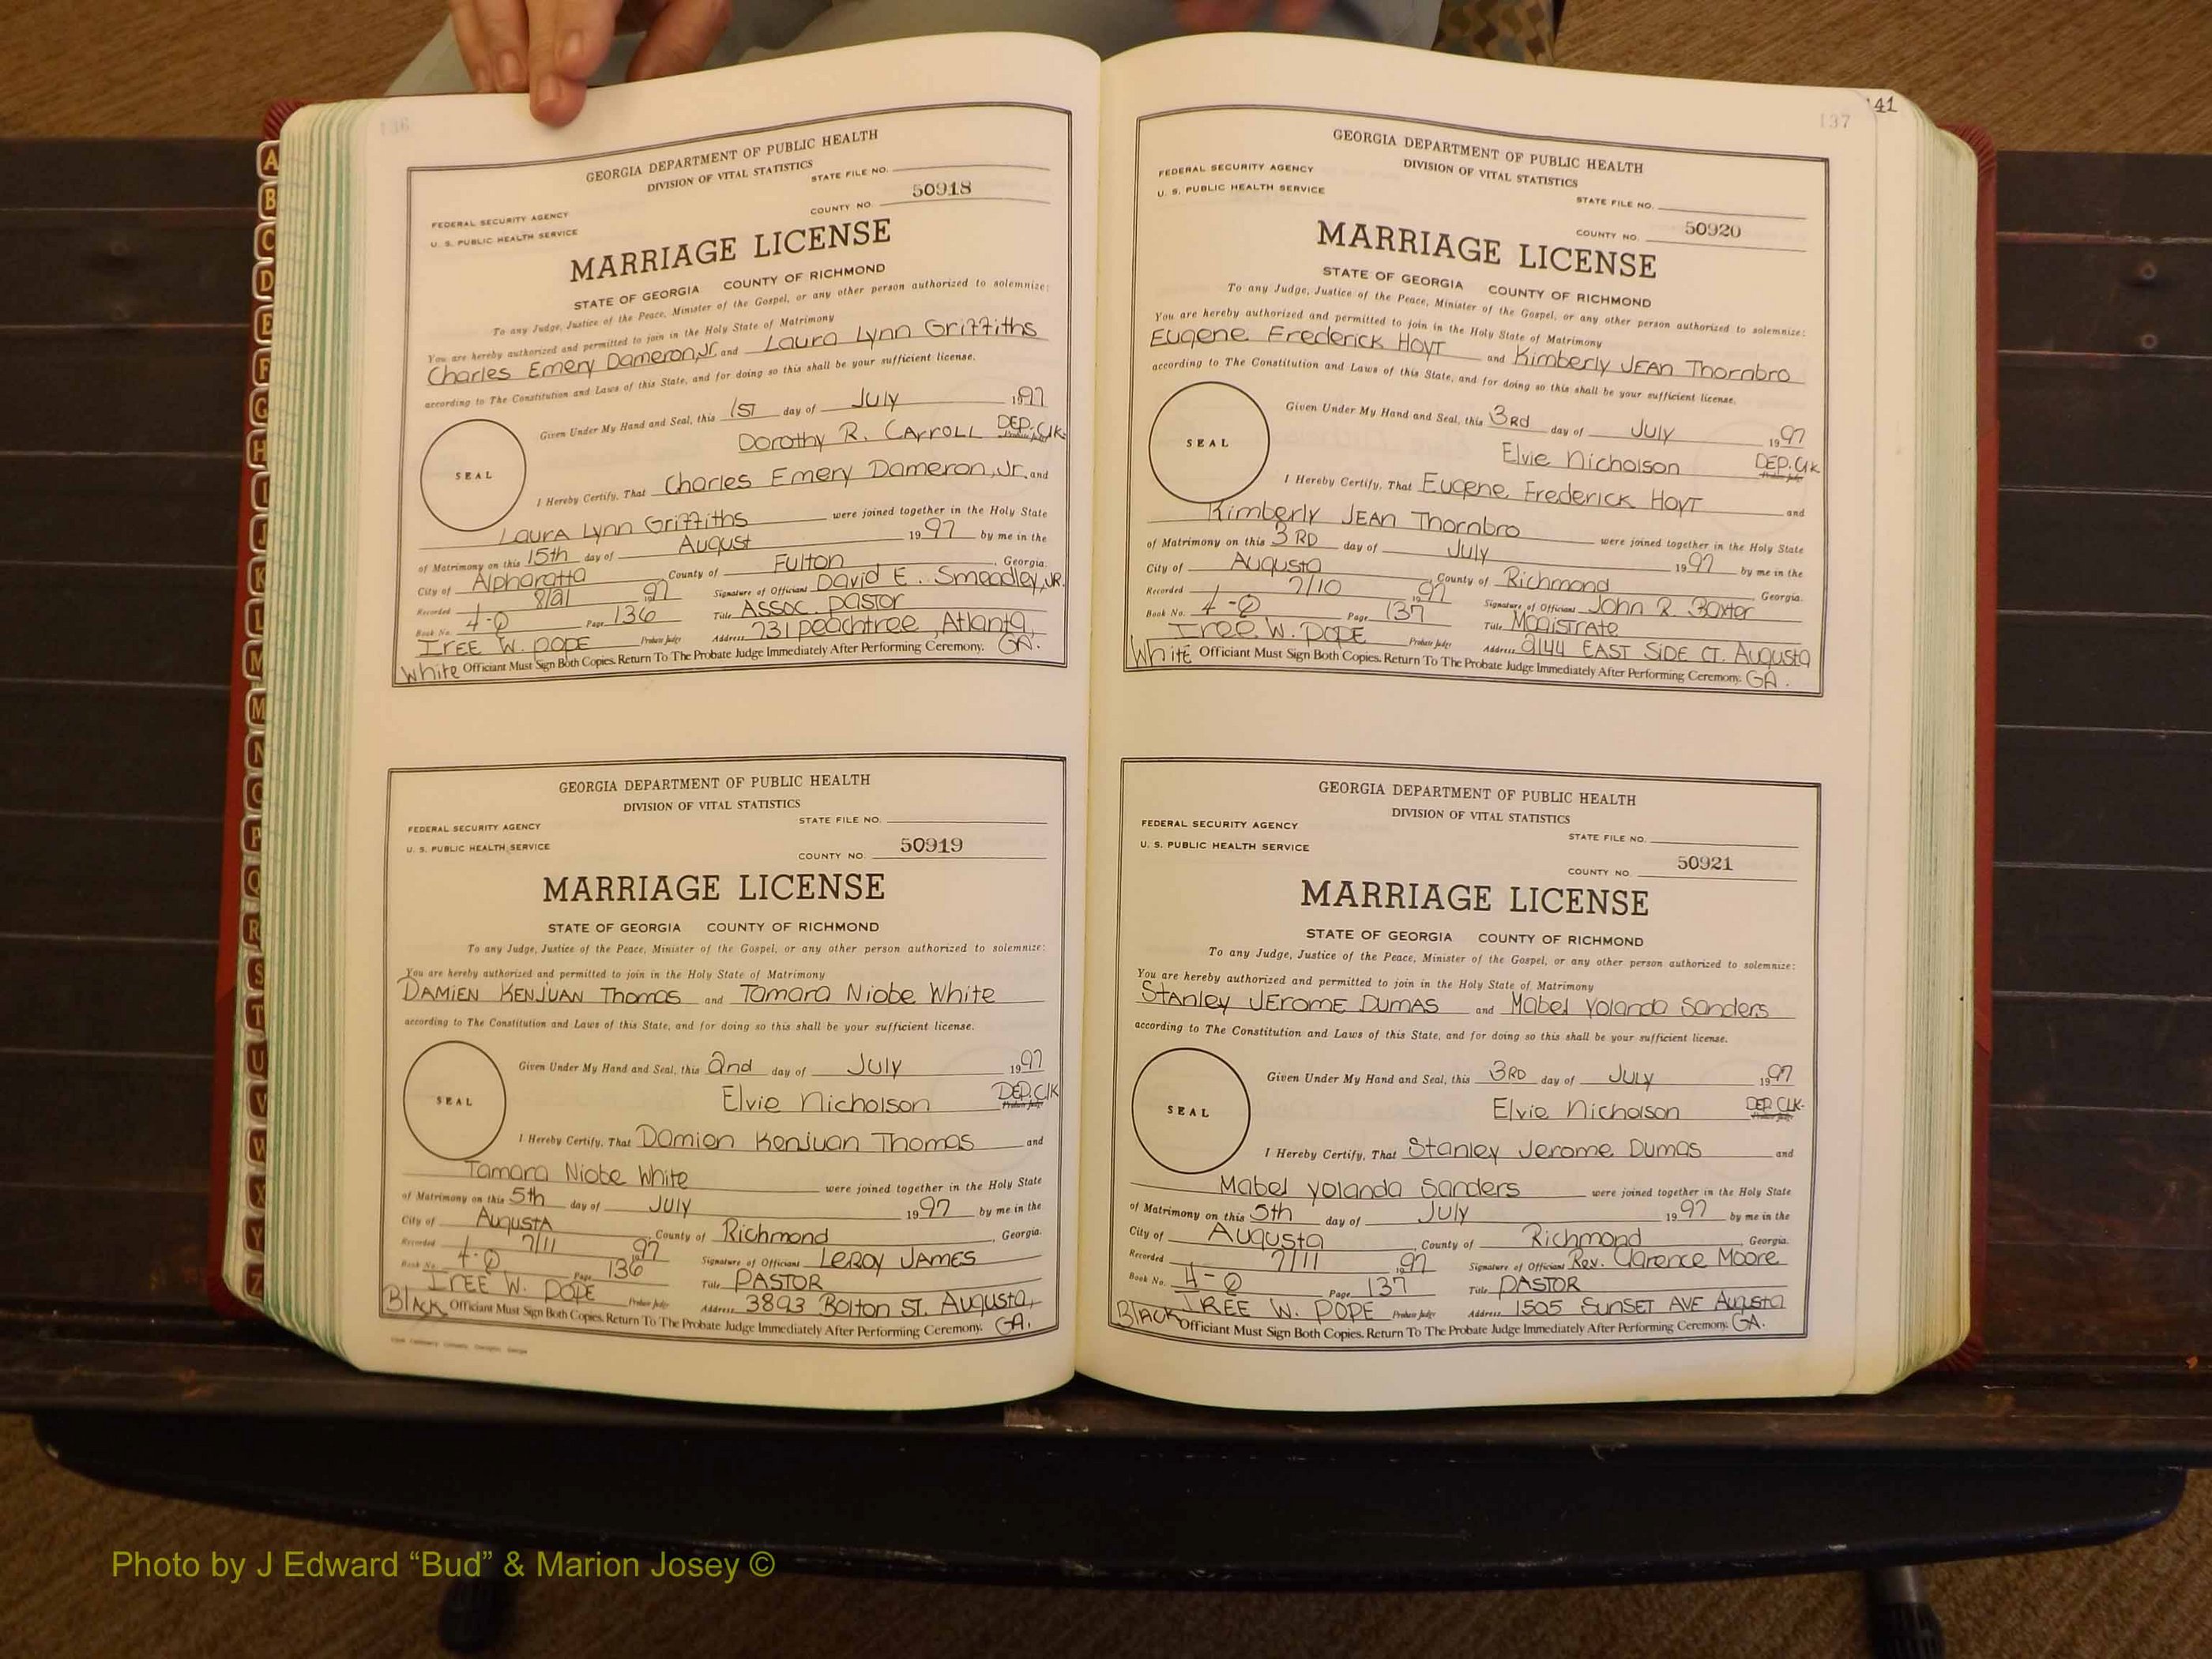 A
B
C
D
E
F
G
H
I
J
K
L
M
M
N
O
P
Q
R
S
T
U
V
W
X
Y
Z
136
GEORGIA DEPARTMENT OF PUBLIC HEALTH
DIVISION OF VITAL STATISTICS
STATE FILE NO.
FEDERAL SECURITY AGENCY
U. S. PUBLIC HEALTH SERVICE
COUNTY NO. 50918
MARRIAGE LICENSE
STATE OF GEORGIA COUNTY OF RICHMOND
To any Judge, Justice of the Peace, Minister of the Gospel, or any other person authorized to solemnize:
You are hereby authorized and permitted to join in the Holy State of Matrimony
Charles Emery Dameron, Jr. and Laura Lynn Griffiths
according to The Constitution and Laws of this State, and for doing so this shall be your sufficient license.
Given Under My Hand and Seal, this 1ST day of July 1997
Dorothy R. CArroLL DEP. Clk.
Probate Judge
SEAL
I Hereby Certify, That Charles Emery Dameron, Jr. and
LaurA Lynn Griffiths were joined together in the Holy State
of Matrimony on this 15th day of August 1997 by me in the
City of Alpharatta County of Fulton, Georgia.
Recorded 8/21 1997 Signature of Officiant David E. Smeadley, JR.
Book No. 4-Q Page 136 Title Assoc. pastor
IrEE W. POPE Probate Judge Address 731 peachtree, Atlanta,
White Officiant Must Sign Both Copies. Return To The Probate Judge Immediately After Performing Ceremony. GA.
GEORGIA DEPARTMENT OF PUBLIC HEALTH
DIVISION OF VITAL STATISTICS
STATE FILE NO.
FEDERAL SECURITY AGENCY
U. S. PUBLIC HEALTH SERVICE
COUNTY NO. 50919
MARRIAGE LICENSE
STATE OF GEORGIA COUNTY OF RICHMOND
To any Judge, Justice of the Peace, Minister of the Gospel, or any other person authorized to solemnize:
You are hereby authorized and permitted to join in the Holy State of Matrimony
DAMIEN KENJUAN Thomas and Tamara Niobe White
according to The Constitution and Laws of this State, and for doing so this shall be your sufficient license.
Given Under My Hand and Seal, this 2nd day of July 1997
Elvie Nicholson DEP. Clk
Probate Judge
SEAL
I Hereby Certify, That Damien Kenjuan Thomas and
Tamara Niobe White were joined together in the Holy State
of Matrimony on this 5th day of JULY 1997 by me in the
City of AugustA, County of Richmond, Georgia.
Recorded 7/11 1997 Signature of Officiant LEROY JAMES
Book No. 4-Q Page 136 Title PASTOR
IREE W. POPE Probate Judge Address 3823 Bolton ST. Augusta,
BlAck Officiant Must Sign Both Copies. Return To The Probate Judge Immediately After Performing Ceremony. GA.
137
141
GEORGIA DEPARTMENT OF PUBLIC HEALTH
DIVISION OF VITAL STATISTICS
FEDERAL SECURITY AGENCY
U. S. PUBLIC HEALTH SERVICE
STATE FILE NO.
COUNTY NO. 50920
MARRIAGE LICENSE
STATE OF GEORGIA COUNTY OF RICHMOND
To any Judge, Justice of the Peace, Minister of the Gospel, or any other person authorized to solemnize:
You are hereby authorized and permitted to join in the Holy State of Matrimony
Eugene Frederick HoyT and Kimberly JEAn Thornbro
according to The Constitution and Laws of this State, and for doing so this shall be your sufficient license.
Given Under My Hand and Seal, this 3Rd day of July 1997
Elvie Nicholson DEP. Clk
Probate Judge
SEAL
I Hereby Certify, That Eugene Frederick HoyT and
Kimberly JEAn Thornbro were joined together in the Holy State
of Matrimony on this 3RD day of July 1997 by me in the
City of Augusta, County of Richmond, Georgia.
Recorded 7/10 1997 Signature of Officiant John R. Baxter
Book No. 4-Q Page 137 Title MagistrAte
Iree. W. POPE Probate Judge Address 2144 EAST SiDE CT. Augusta
White Officiant Must Sign Both Copies. Return To The Probate Judge Immediately After Performing Ceremony. GA.
GEORGIA DEPARTMENT OF PUBLIC HEALTH
DIVISION OF VITAL STATISTICS
FEDERAL SECURITY AGENCY
STATE FILE NO.
U. S. PUBLIC HEALTH SERVICE
COUNTY NO. 50921
MARRIAGE LICENSE
STATE OF GEORGIA COUNTY OF RICHMOND
To any Judge, Justice of the Peace, Minister of the Gospel, or any other person authorized to solemnize:
You are hereby authorized and permitted to join in the Holy State of Matrimony
StAnley JErome DUMAS and Mabel Yolanda Sanders
according to The Constitution and Laws of this State, and for doing so this shall be your sufficient license.
Given Under My Hand and Seal, this 3RD day of July 1997
Elvie Nicholson DEP CLK.
Probate Judge
SEAL
I Hereby Certify, That Stanley Jerome Dumas and
Mabel Yolanda Sanders were joined together in the Holy State
of Matrimony on this 5th day of July 1997 by me in the
City of Augusta, County of Richmond, Georgia.
Recorded 7/11 1997 Signature of Officiant Rev. Clarence Moore
Book No. 4-Q Page 137 Title PASTOR
IREE W. POPE Probate Judge Address 1505 SunSET AVE Augusta
BlAck Officiant Must Sign Both Copies. Return To The Probate Judge Immediately After Performing Ceremony. GA.
Photo by J Edward “Bud” & Marion Josey ©